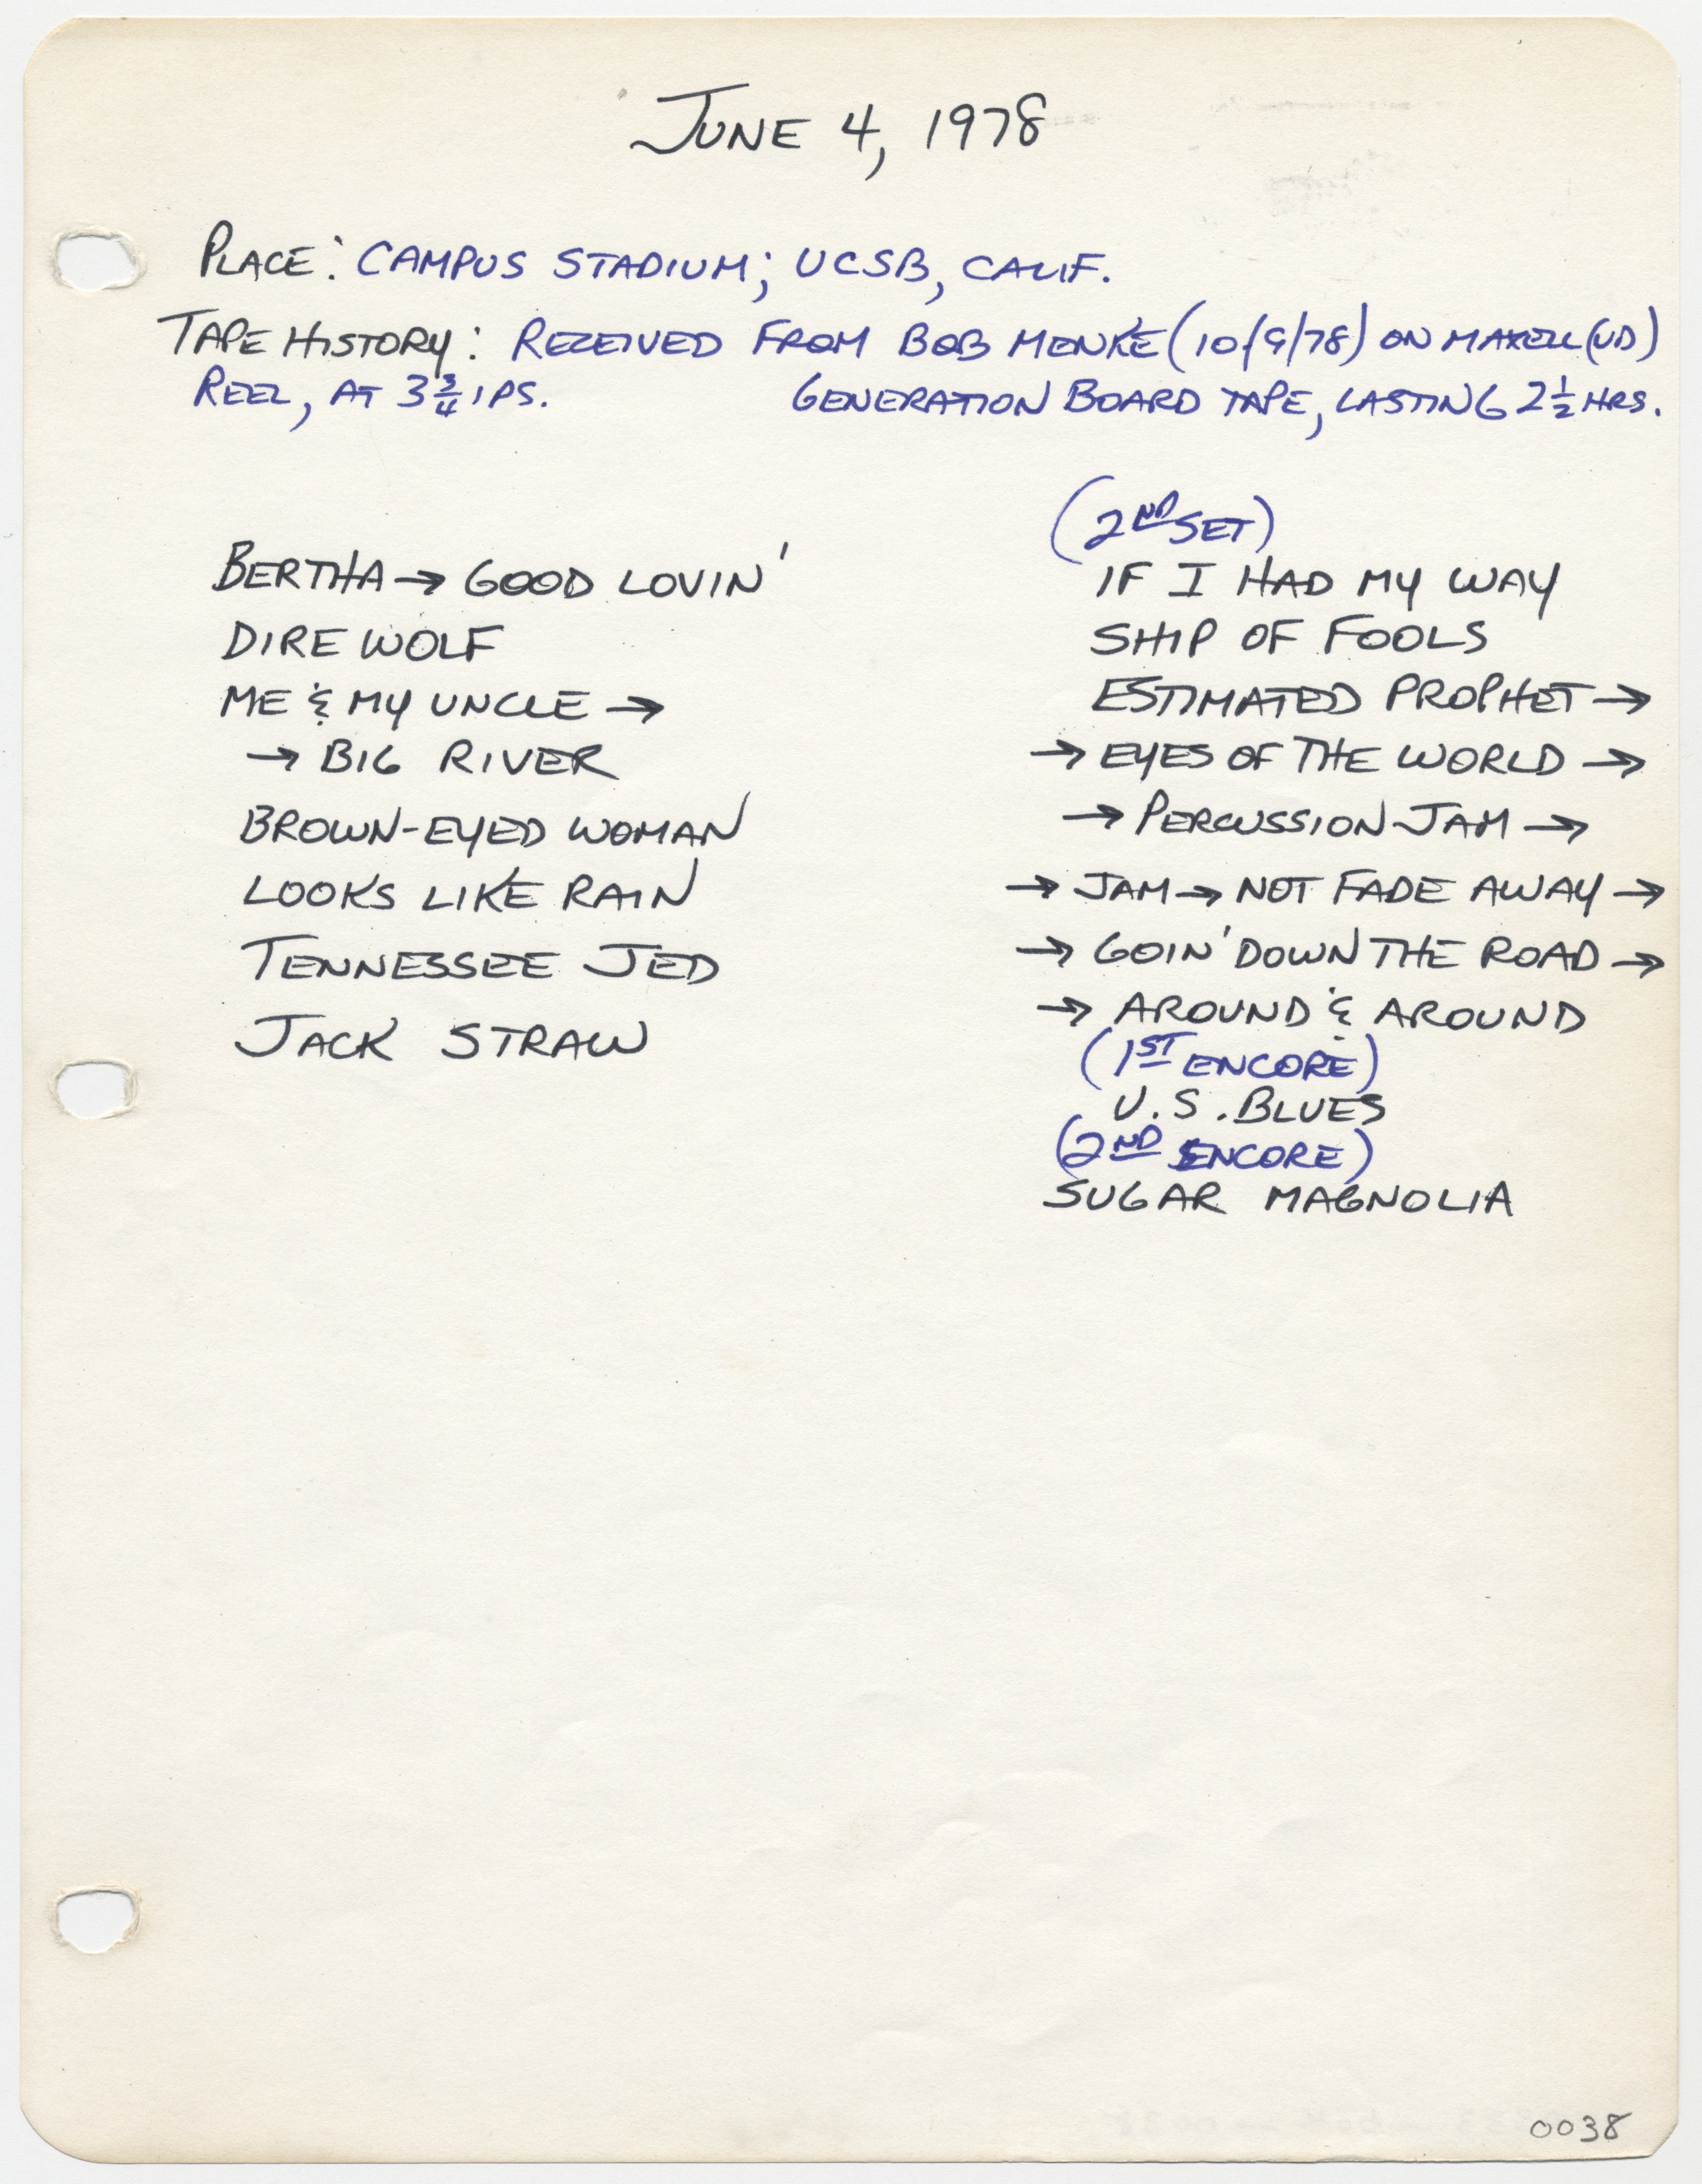 JUNE 4, 1978
PLACE: CAMPUS STADIUM; UCSB, CALIF.
TAPE HISTORY: RECEIVED FROM BOB MENKE (10/9/78) ON MAXELL (UD)
REEL, AT 3 3/4 IPS. GENERATION BOARD TAPE, LASTING 2 1/2 HRS.
BERTHA → GOOD LOVIN'
DIRE WOLF
ME & MY UNCLE →
→ BIG RIVER
BROWN-EYED WOMAN
LOOKS LIKE RAIN
TENNESSEE JED
JACK STRAW
(2ND SET)
IF I HAD MY WAY
SHIP OF FOOLS
ESTIMATED PROPHET →
→ EYES OF THE WORLD →
→ PERCUSSION JAM →
→ JAM → NOT FADE AWAY →
→ GOIN' DOWN THE ROAD →
→ AROUND & AROUND
(1ST ENCORE)
U.S. BLUES
(2ND ENCORE)
SUGAR MAGNOLIA
0038